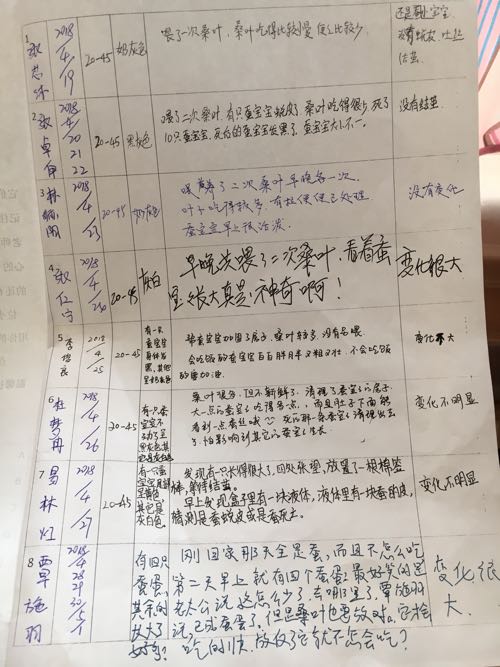 还是
没有蜕皮、吐丝
结茧。
1
2018
4
19
20-45
奶灰色
喂了一次桑叶,桑叶吃得比较慢,便便比较少。
2
张卓
2018
4
20
21
22
20-45
黑灰色
喂了二次桑叶,有只蚕宝宝蜕皮了,桑叶吃得很少,死了
10只蚕宝宝,死后的蚕宝宝发黑了,蚕宝宝大小不一。
没有结茧
3
林
2018
4
23
20-45
奶灰色
喂养了二次桑叶早晚各一次
叶子吃得较多,有拉便便已处理
蚕宝宝早上很活泼
没有变化
4
2018
4
20-45
灰白
早晚共喂了二次桑叶,看着蚕
宝长大真是不神奇啊!
变化很大
5
李
良
2018
4
25
20-45
有一只
蚕宝宝
黑,其他
帮蚕宝宝加固了房子,桑叶较多,没有多喂。
会吃饭的蚕宝宝白白胖月半又粗又壮,不会吃饭
的要加油。
变化不大
6
杜
梦
冉
2018
4
26
20-45
有一只蚕
宝宝不
动了全
黑灰色其
桑叶很多,但不新鲜了,清理了蚕宝宝的房子
大一点的蚕宝宝吃得多一点,而且肚子下面能
看到一点蚕丝哦~死的那一条蚕宝宝清理出去
了,怕影响到其它的蚕宝宝生长。
变化不明显
7
易
林
灯
2018
4
27
20-45
有一只蚕
宝宝是
黄色,
其它是
灰白色。
发现有一只长得很大,四处张望,放置了一根棉签
棒,等待结茧。
早上发现盒子里有一块液体,液体里有一块蚕的皮,
猜测是蚕蜕皮或是蚕死亡。
变化不明显
8
西
早
施
羽
2018
4
28
29
30
5
1
有四只
蚕茧,
其余的
长大了
好多!
刚回家那天全是蚕,而且不怎么吃
第二天早上就有四个蚕茧最好笑的是
老太公说这怎么少了,去哪里了,要放羽
说,已成蚕茧了,但是桑叶也要放对。它抢
吃的快,放的少它就不怎会吃?
变化很
大。